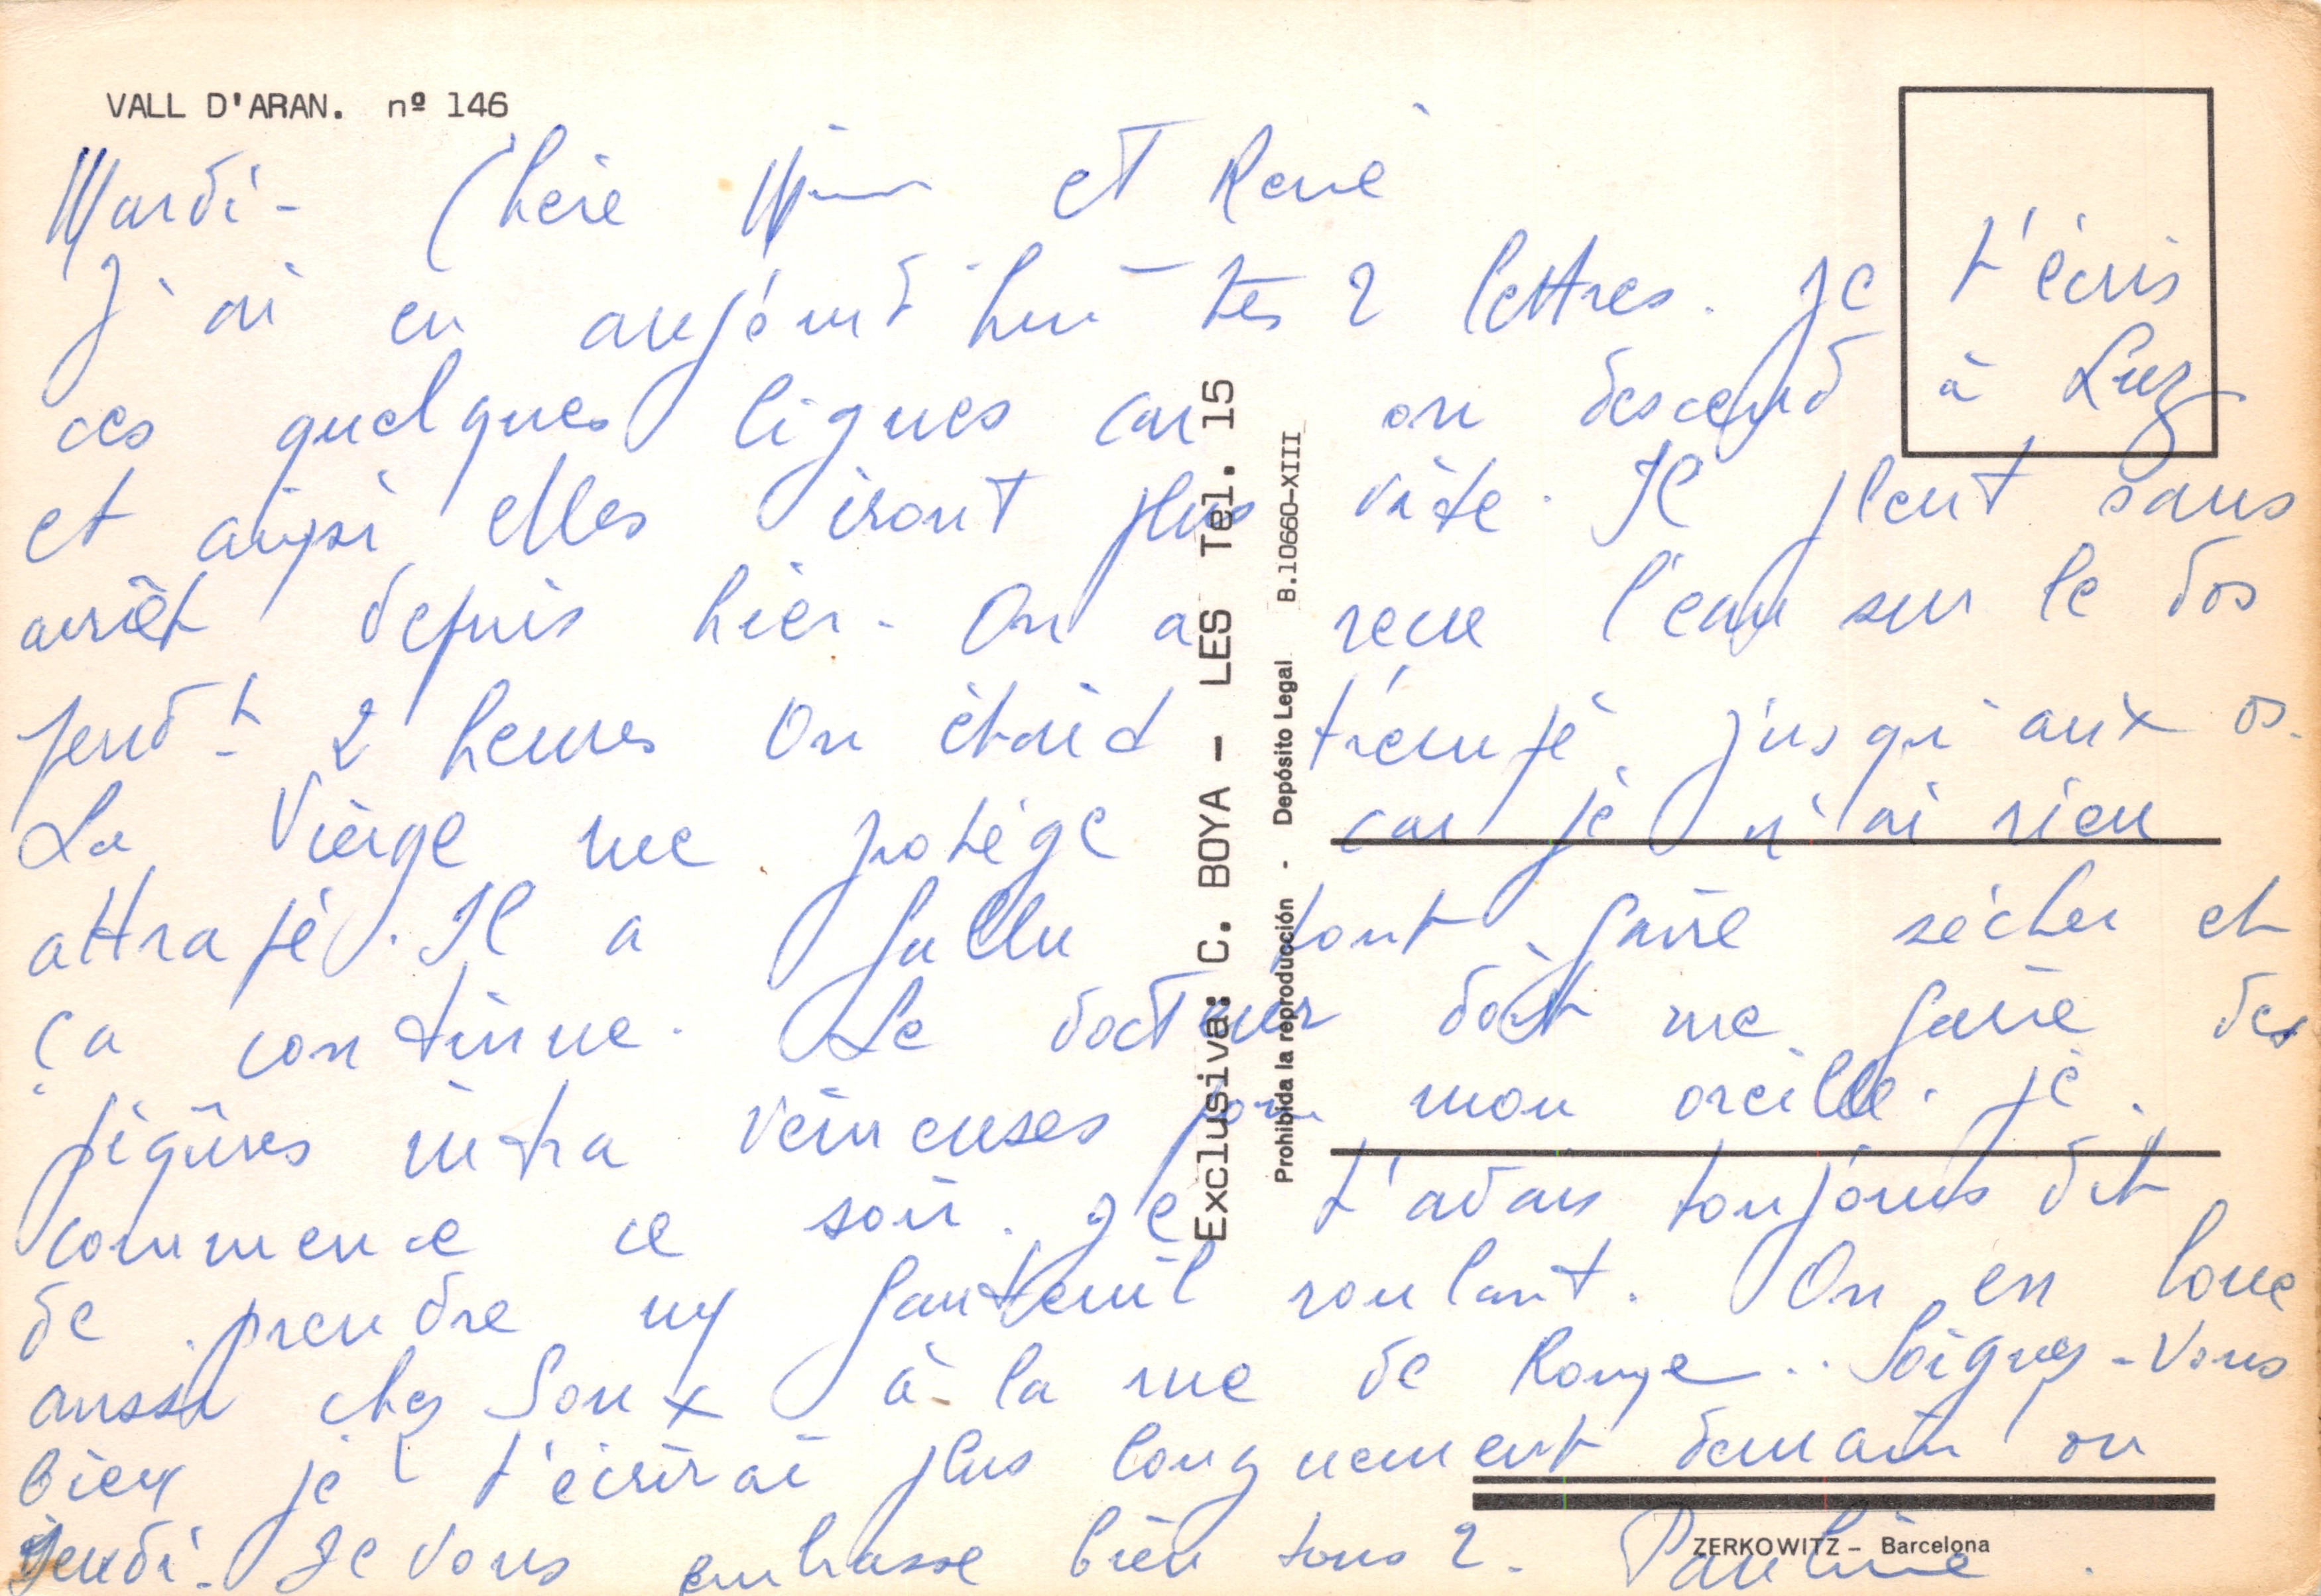 VALL D'ARAN. nº 146
Mardi - Chère et René
J'ai eu aujourd'hui tes 2 lettres. Je t'écris
ces quelques lignes car on descend à Luz
et ainsi elles iront plus vite. Il pleut sans
arrêt depuis hier. On a reçue l'eau sur le dos
pendt 2 heures On était trempé jusqu'aux os.
La Vierge me protège car je n'ai rien
attrapé. Il a fallu tout faire sécher et
ça continue. Le docteur doit me faire des
piqûres intra veineuses pour mon oreille. je
commence ce soir. Je t'avais toujours dit
de prendre un fauteuil roulant. On en loue
aussi chez Soux à la rue de Rouge.. Soignez-vous
bien je t'écrirai plus longuement demain ou
jeudi. Je vous embrasse bien tous 2. Pauline.
Exclusiva: C. BOYA - LES Tel. 15
Prohibida la reproducción - Depósito Legal B.10660-XIII
ZERKOWITZ - Barcelona